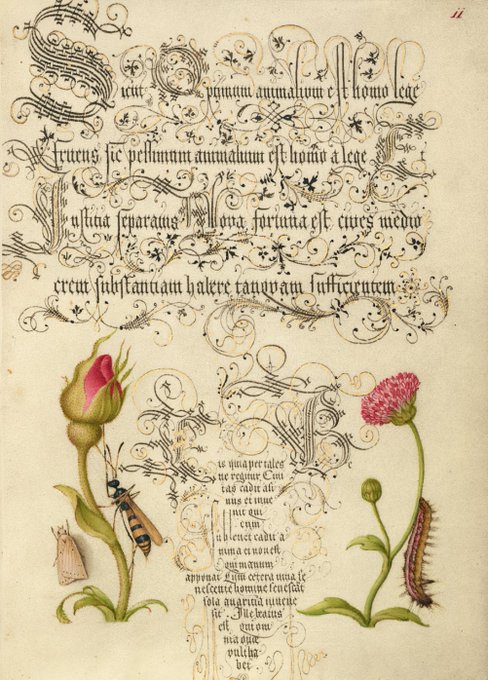 ii
Sicut Optimum animalium est homo lege
fruens, sic pessimum animalium est homo a lege et
Iustitia separatus Nova fortuna est, cives medio
crem substantiam habere tanquam sufficientem
is quia per tales
ne regitur, Civi
tas cadit asi
nus et inve
nit qui
eum
sublevet cadit a
nima et non est
qui manum
apponat Cum cetera vitia se
nescente homine senescat
sola avaritia iuvene
sit. Ille beatus
est qui om
nia quae
vult ha
bet.